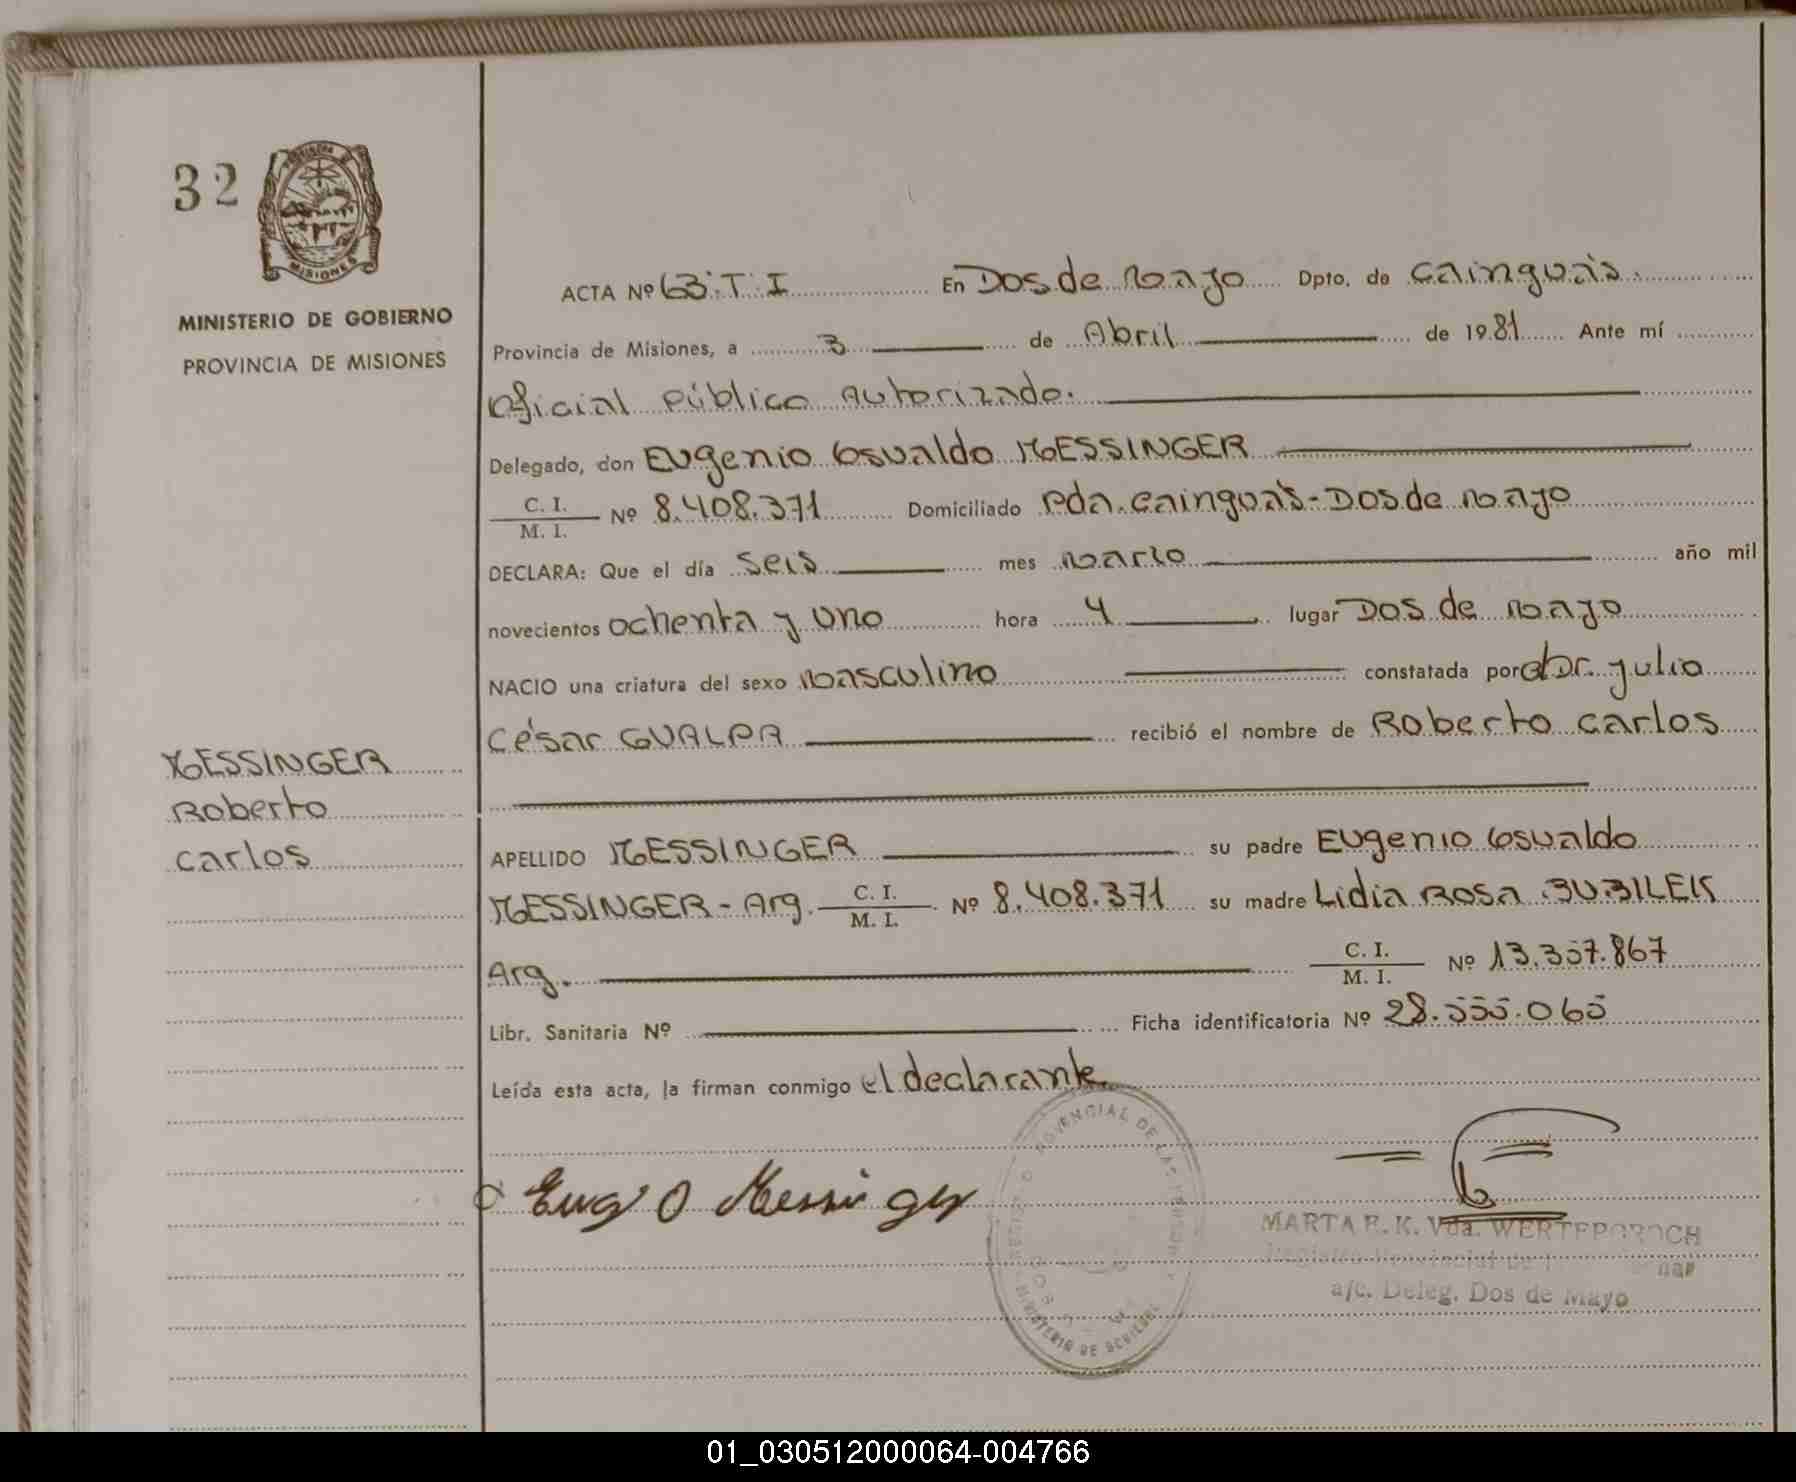 32
PROVINCIA DE
MISIONES
MINISTERIO DE GOBIERNO
PROVINCIA DE MISIONES
ACTA Nº 63-T-I En Dos de Mayo Dpto. de Cainguás.
Provincia de Misiones, a 3 de Abril de 1981 Ante mí
Oficial Público Autorizado.
Delegado, don Eugenio Osvaldo MESSINGER
C. I.
M. I. Nº 8.408.371 Domiciliado Pda. Cainguás - Dos de Mayo
DECLARA: Que el día seis mes Marzo año mil
novecientos ochenta y uno hora 4 lugar Dos de Mayo
NACIO una criatura del sexo Masculino constatada por el Dr. Julio
César GUALPA recibió el nombre de Roberto Carlos
MESSINGER
Roberto
Carlos
APELLIDO MESSINGER su padre Eugenio Osvaldo
MESSINGER - Arg. C. I.
M. I. Nº 8.408.371 su madre Lidia Rosa BUBILEK
Arg. C. I.
M. I. Nº 13.357.867
Libr. Sanitaria Nº Ficha identificatoria Nº 28.555.065
Leída esta acta, la firman conmigo el declarante
Eug O Messinger
MARTA E. K. Vda. WERTEPOROCH
Registro Provincial de
a/c. Deleg. Dos de Mayo
PROVINCIAL DE LAS PERSONAS
MINISTERIO DE GOBIERNO
01_030512000064-004766